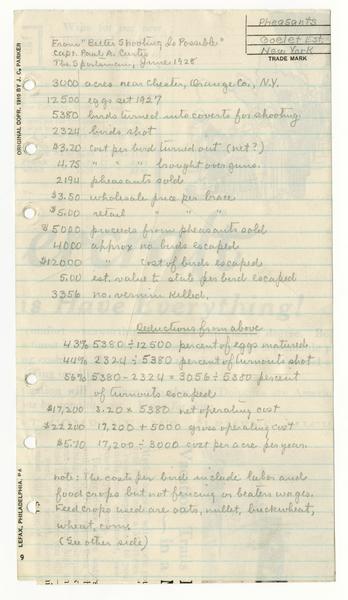 Pheasants
Goelet Est.
New York
TRADE MARK
From "Better Shooting Is Possible"
Capt. Paul A. Curtis
The Sportsman, June 1928
3000 acres near Chester, Orange Co., N.Y.
12500 eggs set 1927
5380 birds turned into coverts for shooting
2324 birds shot
$3.20 cost per bird turned out (net?)
4.75 " " " brought over guns.
2194 pheasants sold
$3.50 wholesale price per brace
$5.00 retail " " "
$5000 proceeds from pheasants sold
4000 approx no. birds escaped
$12000 " cost of birds escaped
5.00 est. value to state per bird escaped
3356 no. vermin killed,
Deductions from above
43% 5380 ÷ 12500 percent of eggs matured
44% 2324 ÷ 5380 percent of turnouts shot
56% 5380 - 2324 = 3056 ÷ 5380 percent
of turnouts escaped
$17,200 3.20 x 5380 net operating cost
$22200 17,200 + 5000 gross operating cost
$5.70 17,200 ÷ 3000 cost per acre per year.
note: The costs per bird include labor and
food crops but not fencing or beaters wages.
Feed crops used are oats, millet, buckwheat,
wheat, corn.
(See other side)
ORIGINAL COPR. 1910 BY J. C. PARKER
LEFAX, PHILADELPHIA, PA
9